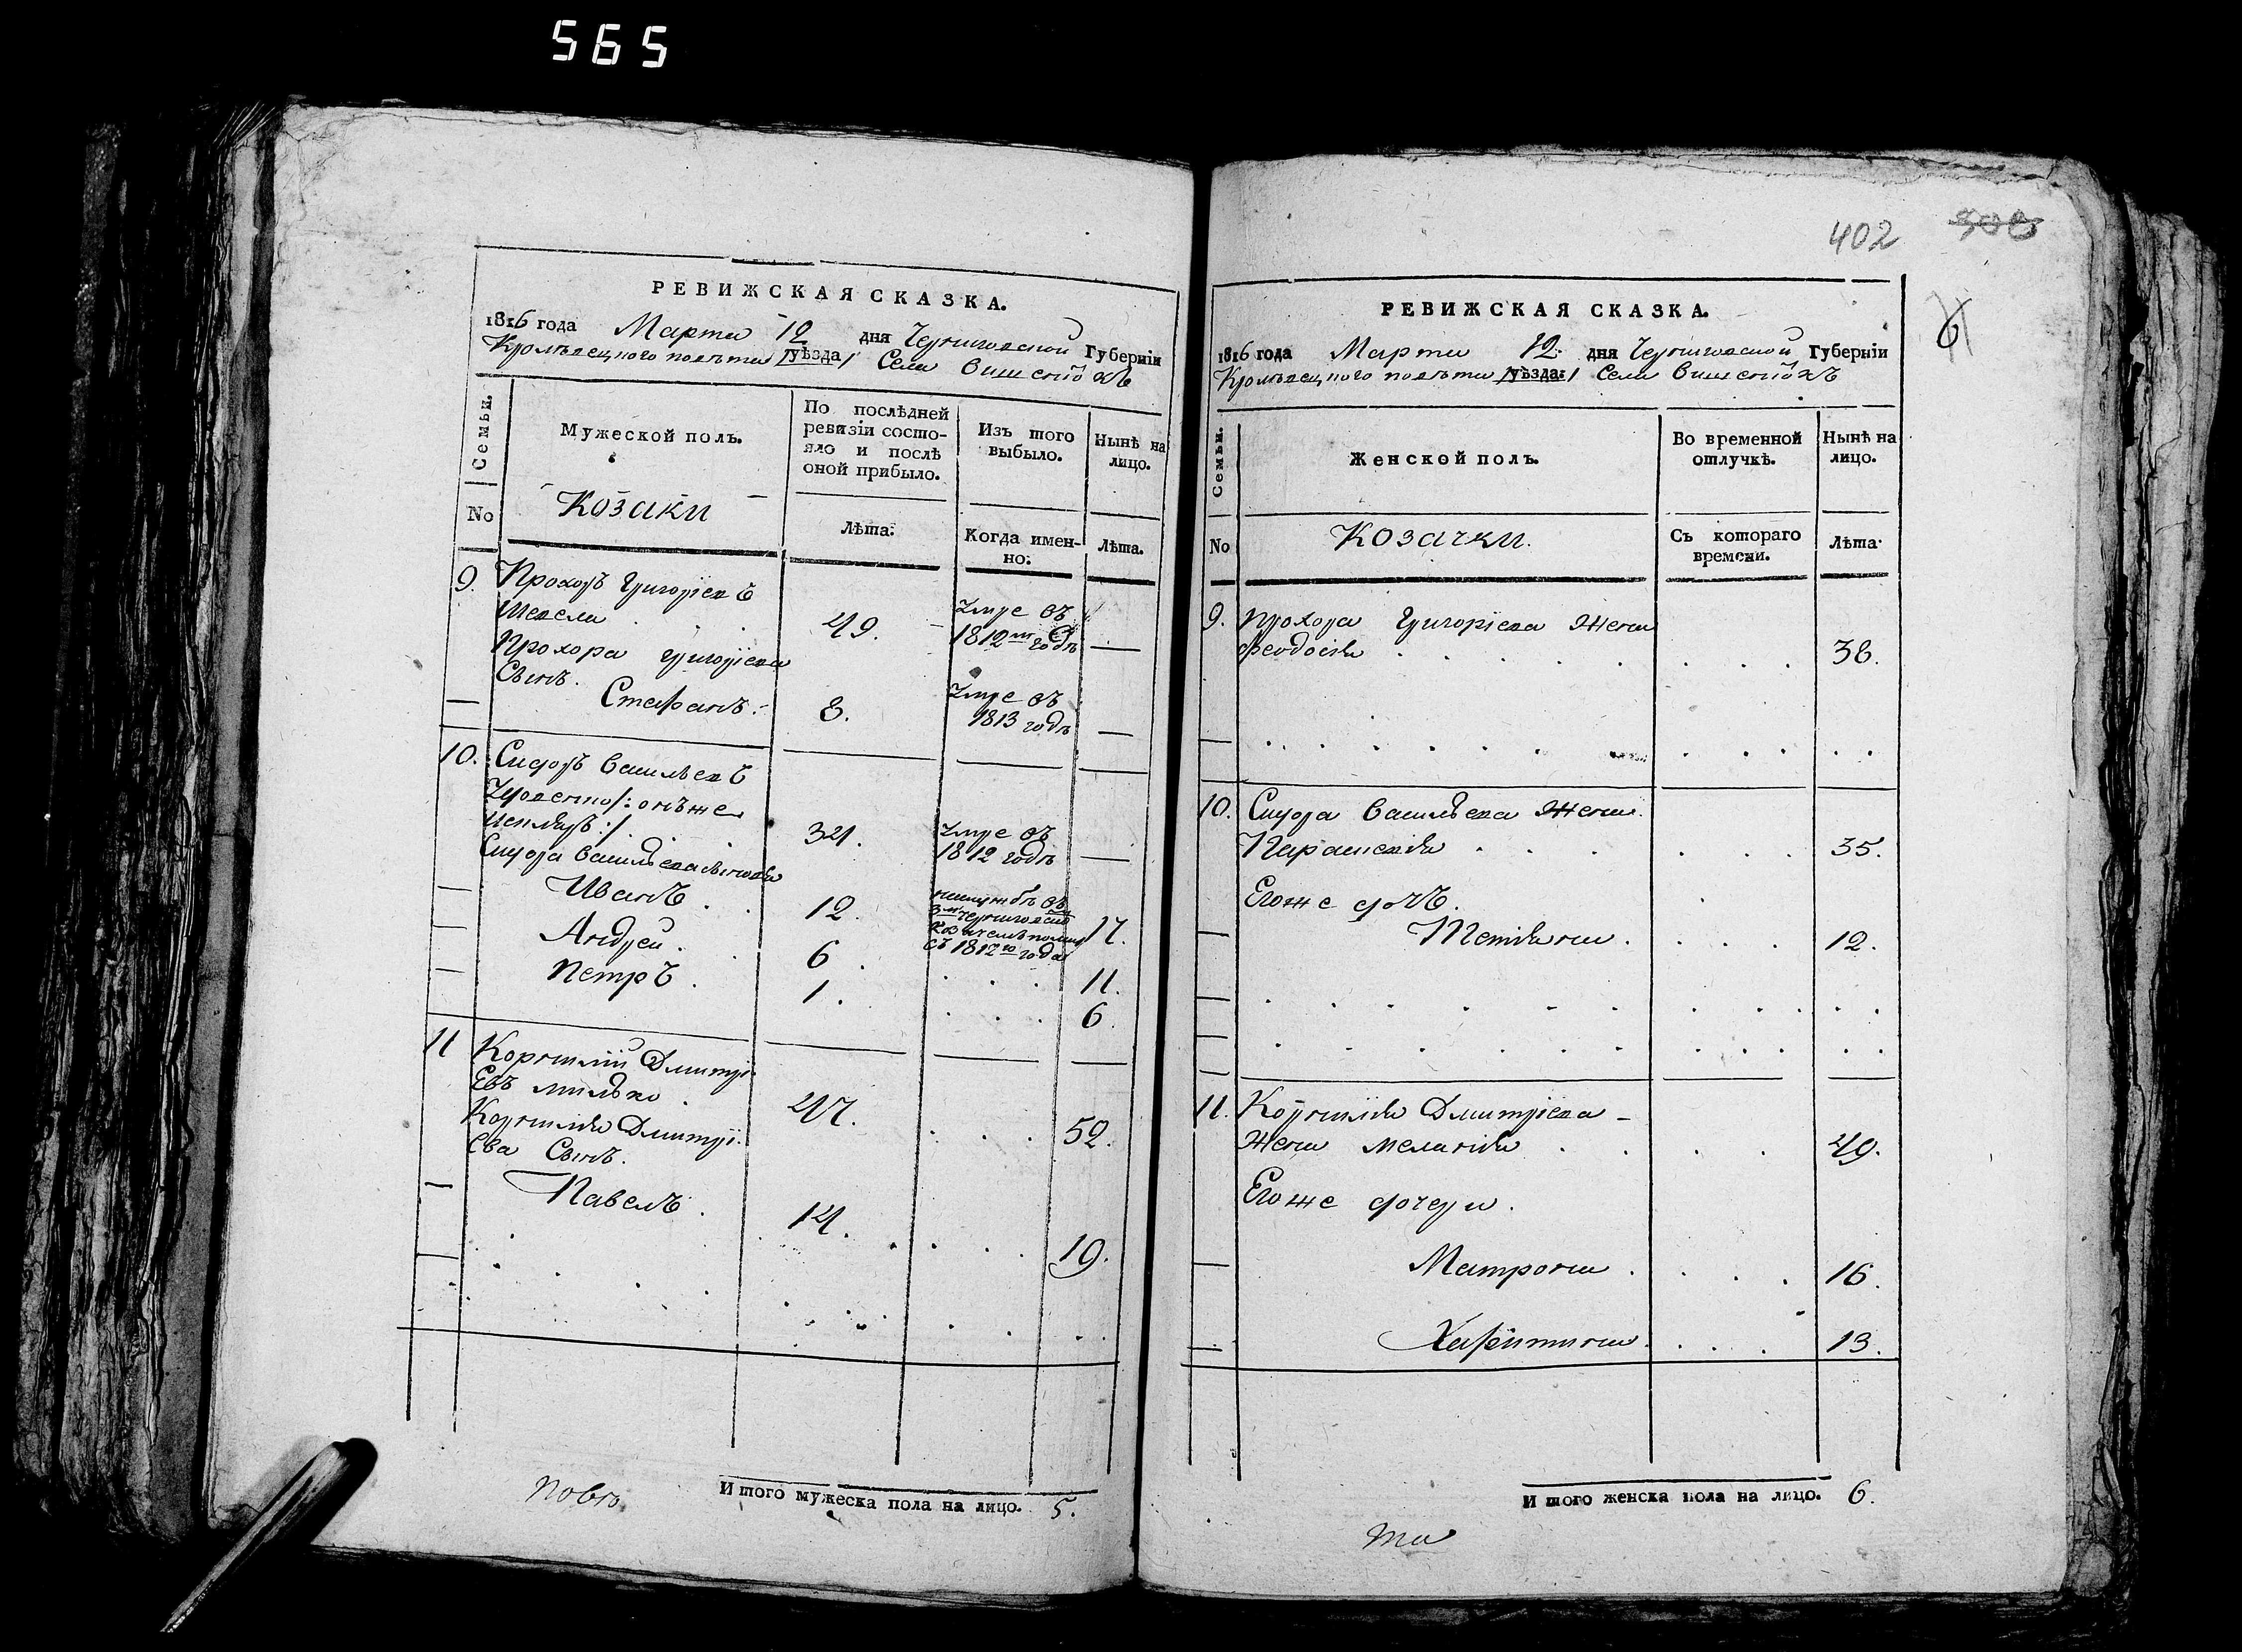 565
РЕВИЖСКАЯ СКАЗКА.
1816 года Марта 12 дня Черниговской Губерніи
Кролѣвецкого повѣта /уѣзда/ Села Вишенокъ
Семьи.
Мужеской полъ.
По послѣдней
ревизіи состо-
яло и послѣ
оной прибыло.
Изъ того
выбыло.
Нынѣ на
лицо.
No
Козаки
Лѣта.
Когда имен-
но.
Лѣта.
9. Прохоръ Григоріевъ
49. Умре въ
1812м годѣ —
Прохора Григоріева
Сынъ.
Стефанъ. 8. Умре въ
1813 годѣ —
10. Сидоръ Васильевъ
онъже
34. Умре въ
1812 годѣ —
Сидора Васильева
Иванъ 12. въ
3м Черниговской
съ 1812го года 17.
Андрей. 6. 11.
Петръ. 1. 6.
11 Корнилій Дмитрі-
евъ Милько. 47. 52.
Корнилія Дмитрі-
ева Сынъ.
Павелъ. 14. 19.
Итого мужеска пола на лицо. 5.
повѣ
402
6
РЕВИЖСКАЯ СКАЗКА.
1816 года Марта 12. дня Черниговской Губерніи
Кролѣвецкого повѣта /уѣзда:/ Села Вишенокъ
Семьи.
Женской полъ.
Во временной
отлучкѣ.
Нынѣ на
лицо.
No
Козачки.
Съ котораго
времени.
Лѣта.
9. Прохора Григоріева Жена
Феодосія 38.
10. Сидора Васильева Жена.
Параскевія 35.
Егоже дочь.
Тетіяна 12.
11. Корнилія Дмитріева -
Жена Меланія 49.
Егоже дочери.
Матрона 16.
Харитина 13.
Итого женска пола на лицо. 6.
та